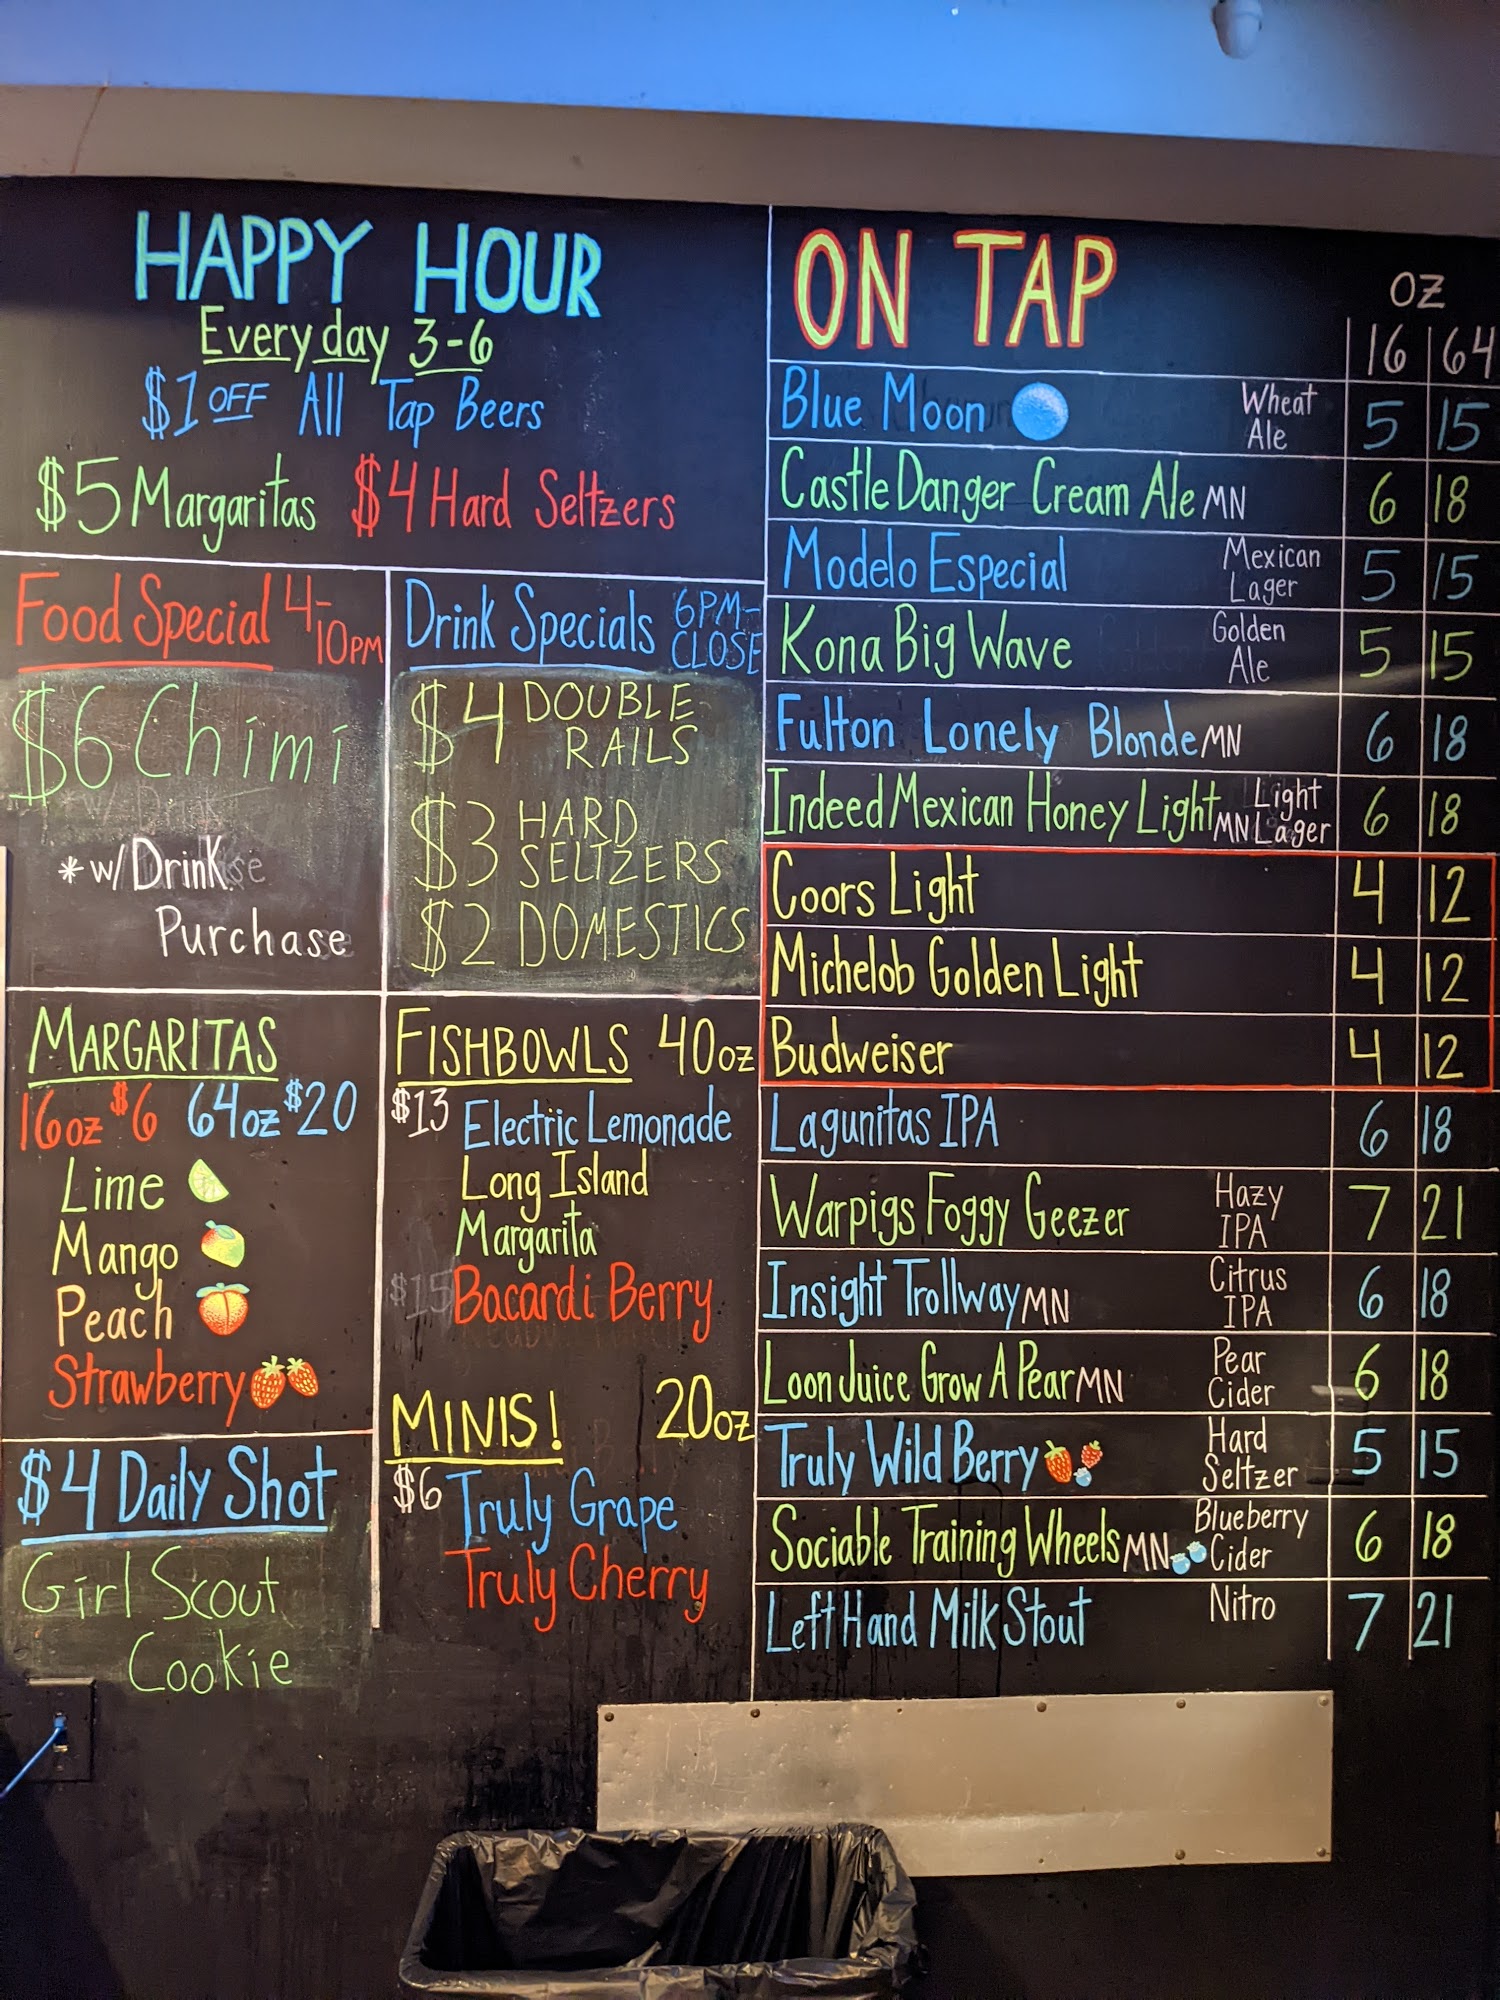 HAPPY HOUR
Everyday 3-6
$1 OFF All Tap Beers
$5 Margaritas $4 Hard Seltzers
Food Special 4-
10PM
$6 Chimi
*w/ Drink
Purchase
Drink Specials 6PM-
CLOSE
$4 DOUBLE
RAILS
$3 HARD
SELTZERS
$2 DOMESTICS
MARGARITAS
16oz $6 64oz $20
Lime
Mango
Peach
Strawberry
$4 Daily Shot
Girl Scout
Cookie
FISHBOWLS 40oz
$13 Electric Lemonade
Long Island
Margarita
$15 Bacardi Berry
MINIS! 20oz
$6 Truly Grape
Truly Cherry
ON TAP
OZ
16 64
Blue Moon Wheat Ale 5 15
Castle Danger Cream Ale MN 6 18
Modelo Especial Mexican Lager 5 15
Kona Big Wave Golden Ale 5 15
Fulton Lonely Blonde MN 6 18
Indeed Mexican Honey Light MN Light Lager 6 18
Coors Light 4 12
Michelob Golden Light 4 12
Budweiser 4 12
Lagunitas IPA 6 18
Warpigs Foggy Geezer Hazy IPA 7 21
Insight Trollway MN Citrus IPA 6 18
Loon Juice Grow A Pear MN Pear Cider 6 18
Truly Wild Berry Hard Seltzer 5 15
Sociable Training Wheels MN Blueberry Cider 6 18
Left Hand Milk Stout Nitro 7 21